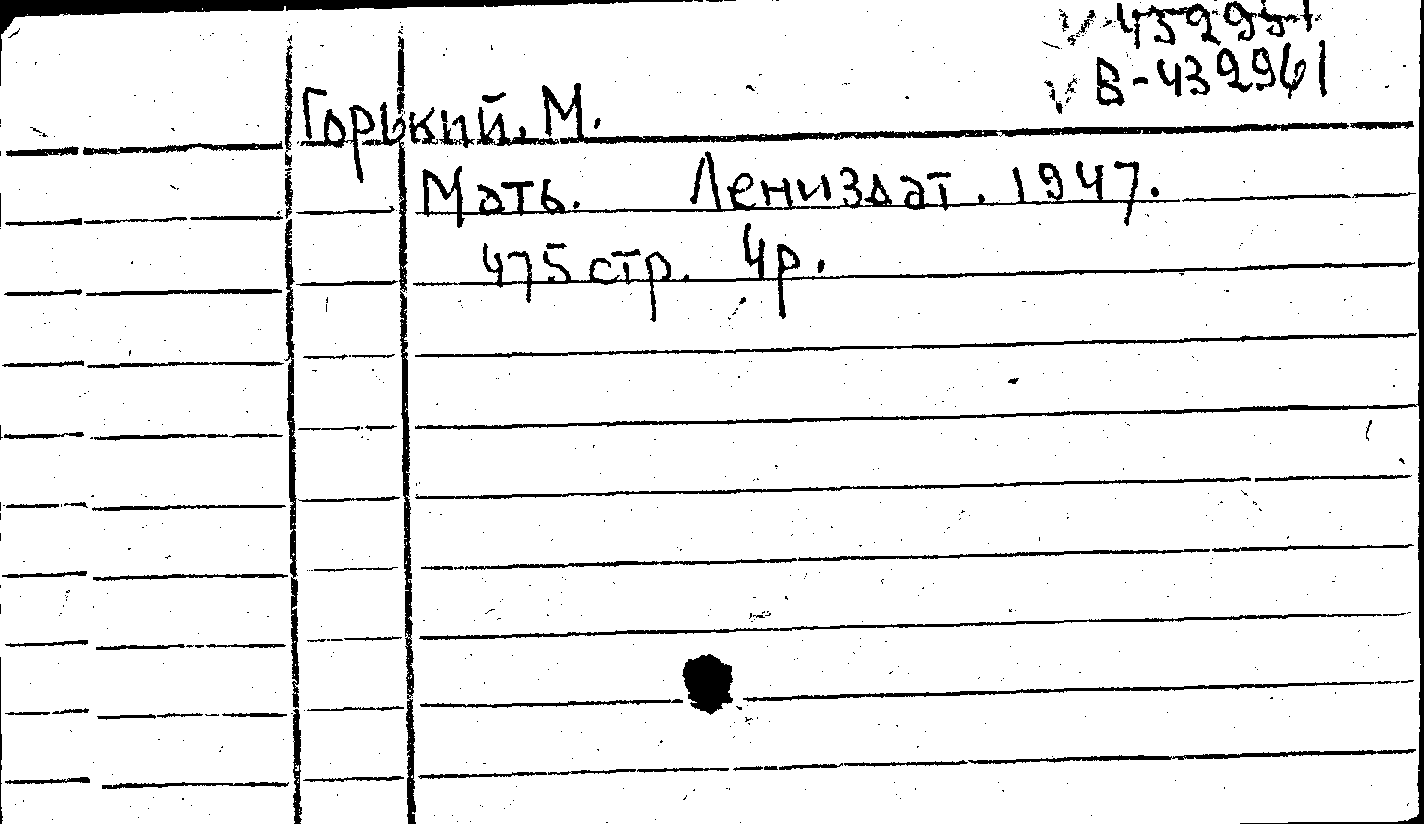 В-432961
Горький. М.
Мать. Лениздат. 1947.
475 стр. 4р.